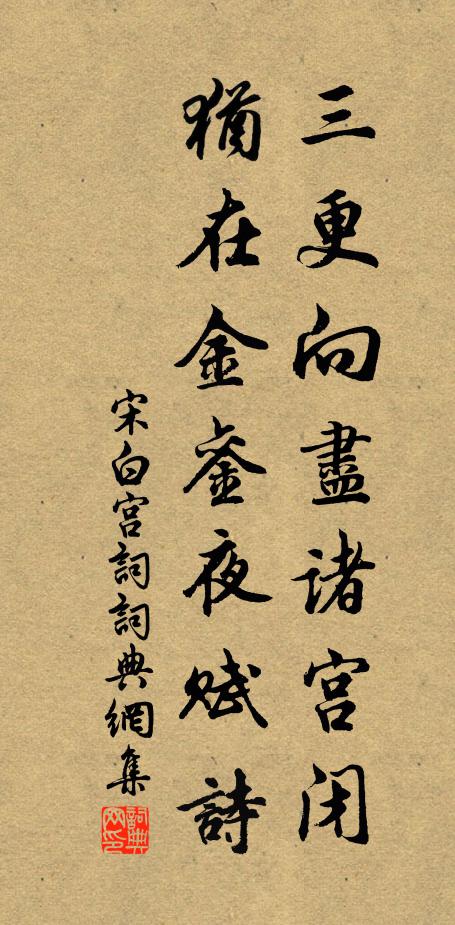 三更向盡諸宮闭
猶在金銮夜赋詩
宋白宫詞詞典網集
詞典网印